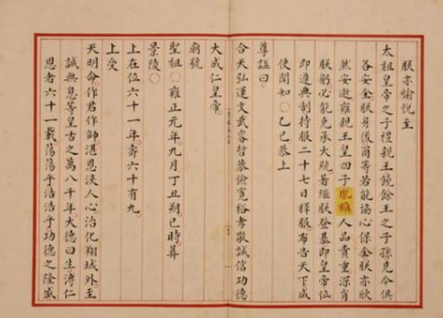 朕亦愉悅至
太祖皇帝之子禮親王饒餘王之子孫見今俱
各安全朕身後爾等若能協心保全朕亦欣
然安逝雍親王皇四子胤禛人品貴重深肖
朕躬必能克承大統著繼朕登基即皇帝位
即遵典制持服二十七日釋服布告天下咸
使聞知○乙巳恭上
尊諡曰
合天弘運文武睿哲恭儉寬裕孝敬誠信功德
大成仁皇帝
廟號
聖祖○雍正元年九月丁丑朔巳時葬
景陵○
上在位六十一年壽六十有九
上受
天明命作君作師湛恩浹人心治化翔域外至
誠無息等皇古之萬八千年大德曰生溥仁
恩者六十一載蕩蕩乎浩浩乎功德之隆